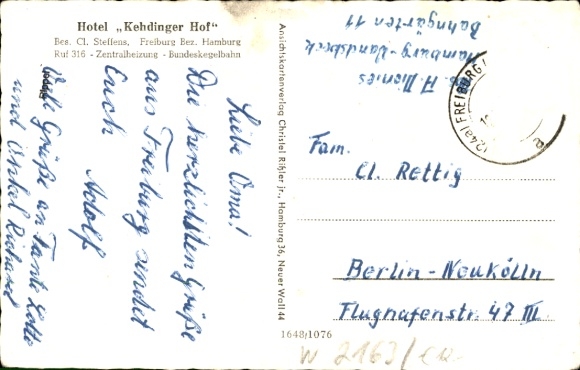 Hotel „Kehdinger Hof“
Bes. Cl. Steffens, Freiburg Bez. Hamburg
Ruf 316 - Zentralheizung - Bundeskegelbahn
Liebe Oma!
Die herzlichsten Grüße
aus Freiburg sendet
Euch
Adolf
Viele Grüße an Tante Lotte
und Onkel Richard
Ansichtskartenverlag Christel Rißler jr., Hamburg 36, Neuer Wall 44
1648/1076
Hamburg-Wandsbeck
Bahngärten 11
(24a) FREIBURG
Fam.
Cl. Rettig
Berlin-Neukölln
Flughafenstr. 47 III.
W 2163/